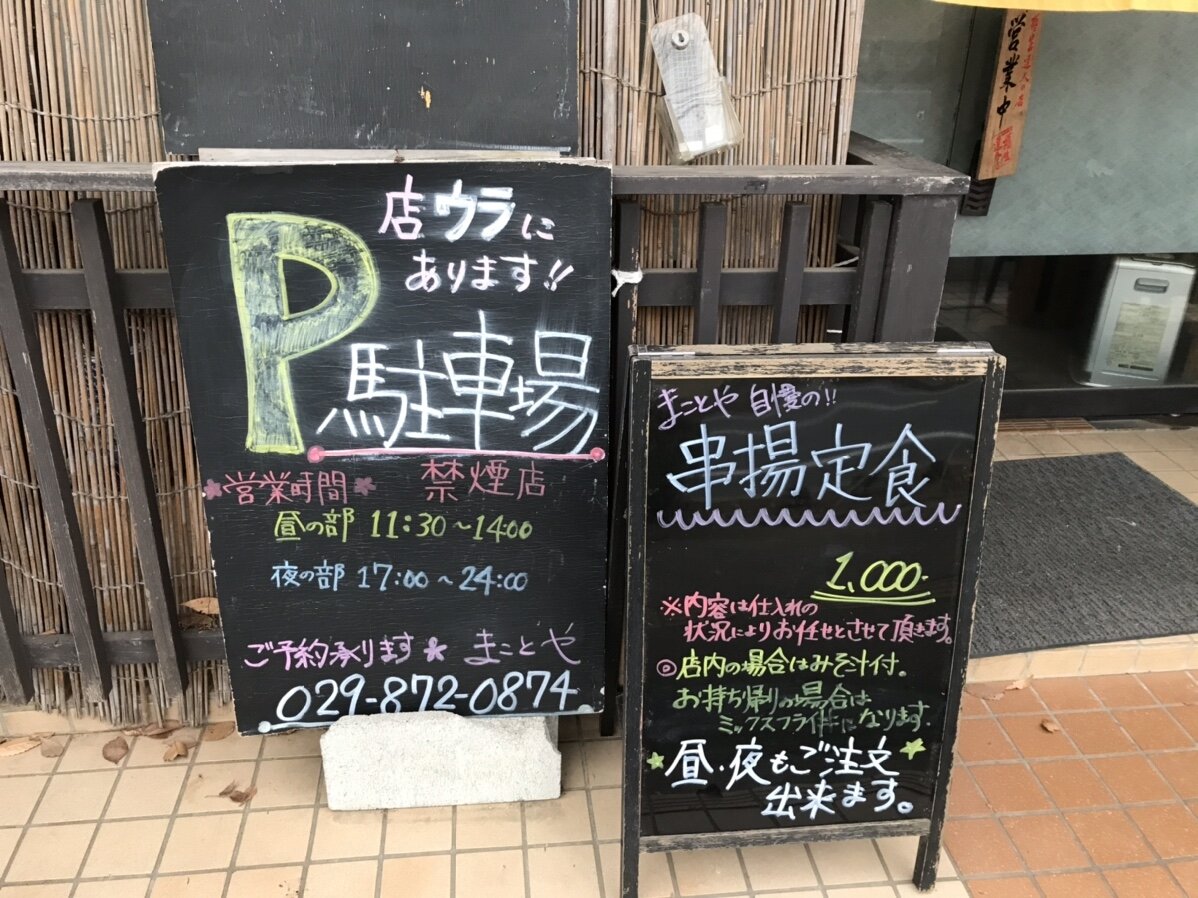 店ウラに
あります!!
P
駐車場
営業時間 禁煙店
昼の部 11:30~14:00
夜の部 17:00~24:00
ご予約承ります まことや
029-872-0874
まことや 自慢の!!
串揚定食
1,000-
※内容は仕入れの
状況によりお任せとさせて頂きます。
◎店内の場合はみそ汁付。
お持ち帰りの場合は
ミックスフライ丼になります.
昼・夜もご注文
出来ます。
営業中